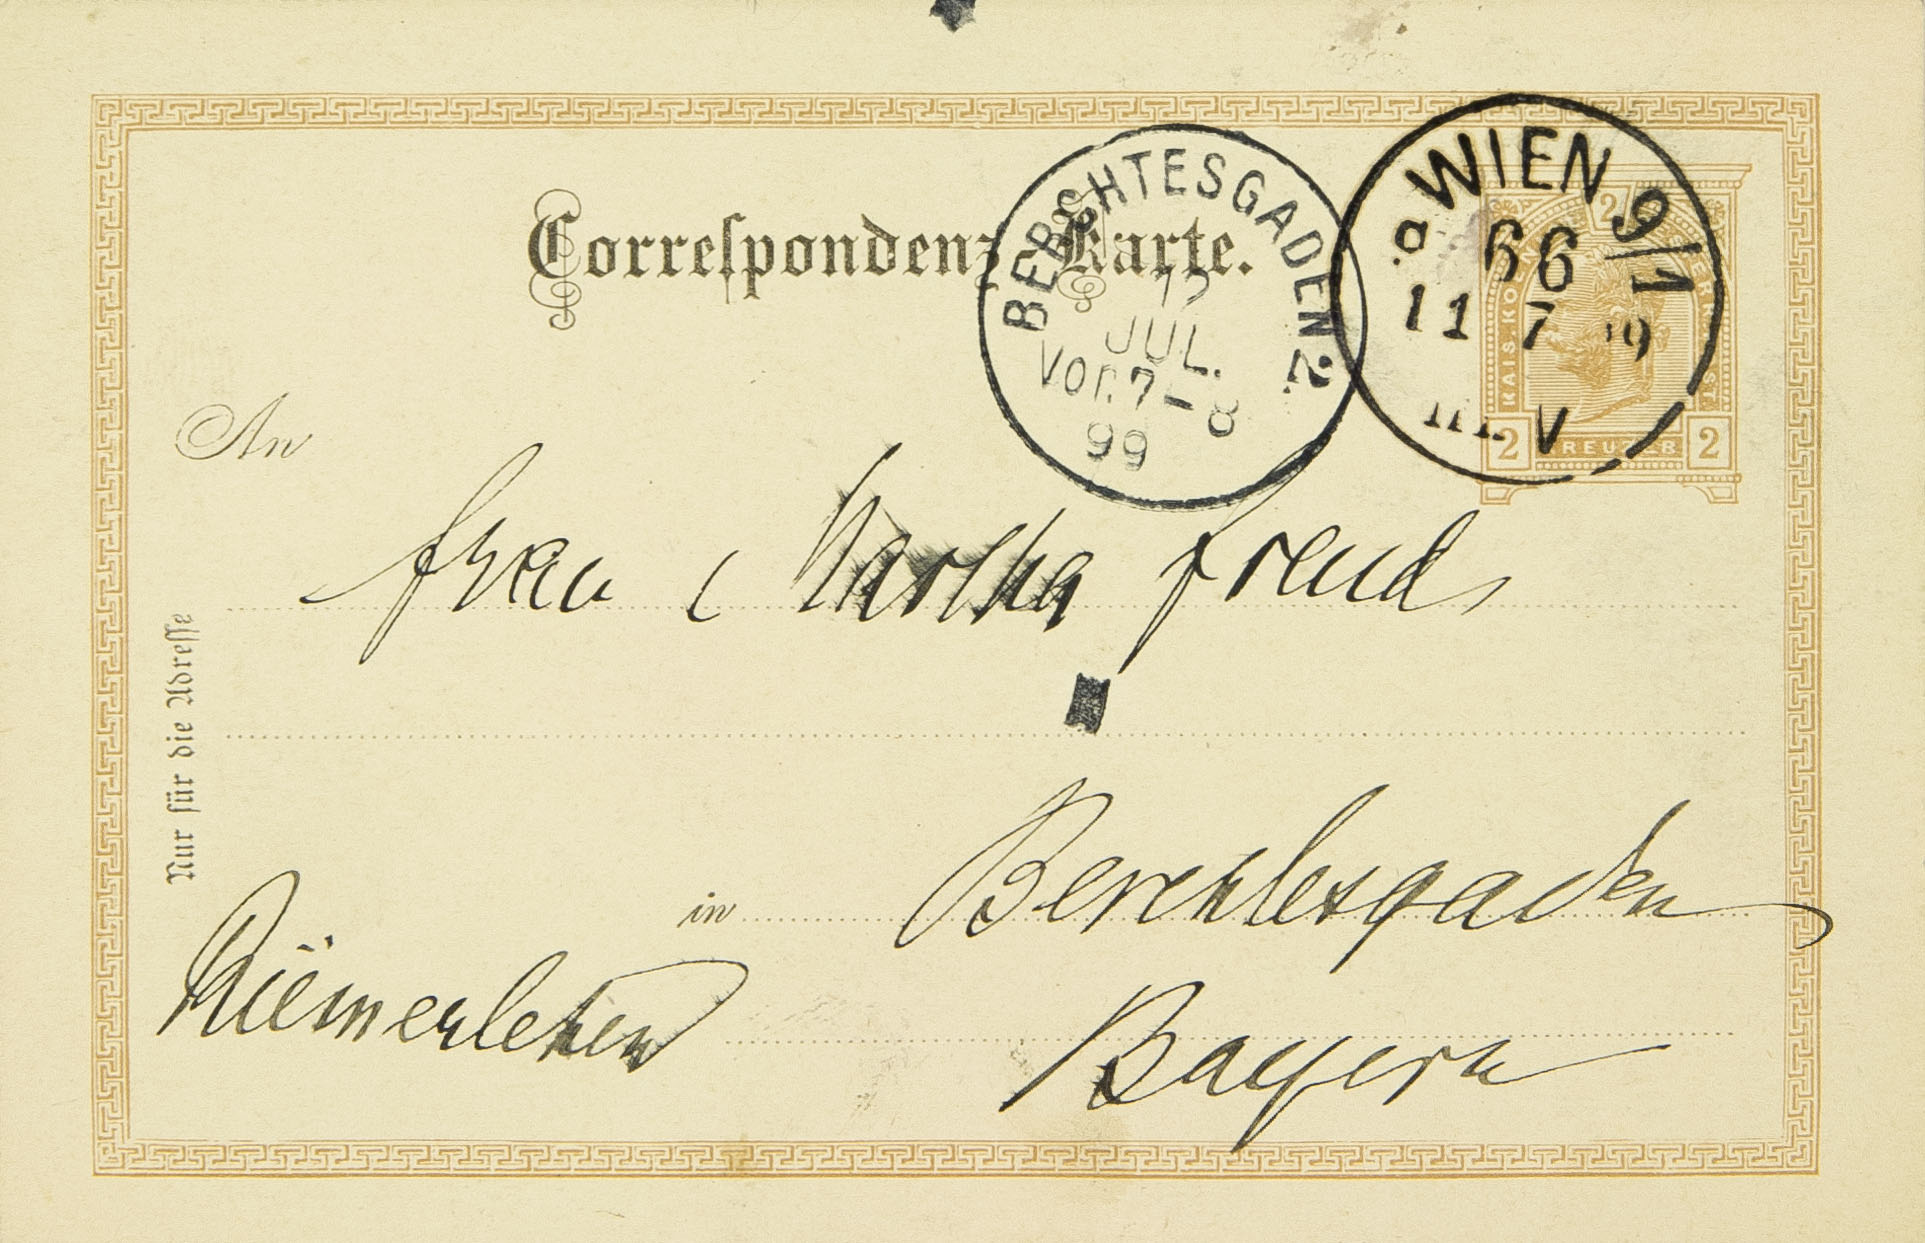 Correspondenz-Karte.
BERCHTESGADEN 2.
12
JUL.
Vor. 7-8
99
WIEN 9/1
66
11 7 99
V
2
KAIS. KÖ
2 KREUZER 2
An
Frau Martha Freud
Nur für die Adresse
in Berchtesgaden
Riemerlehen
Bayern